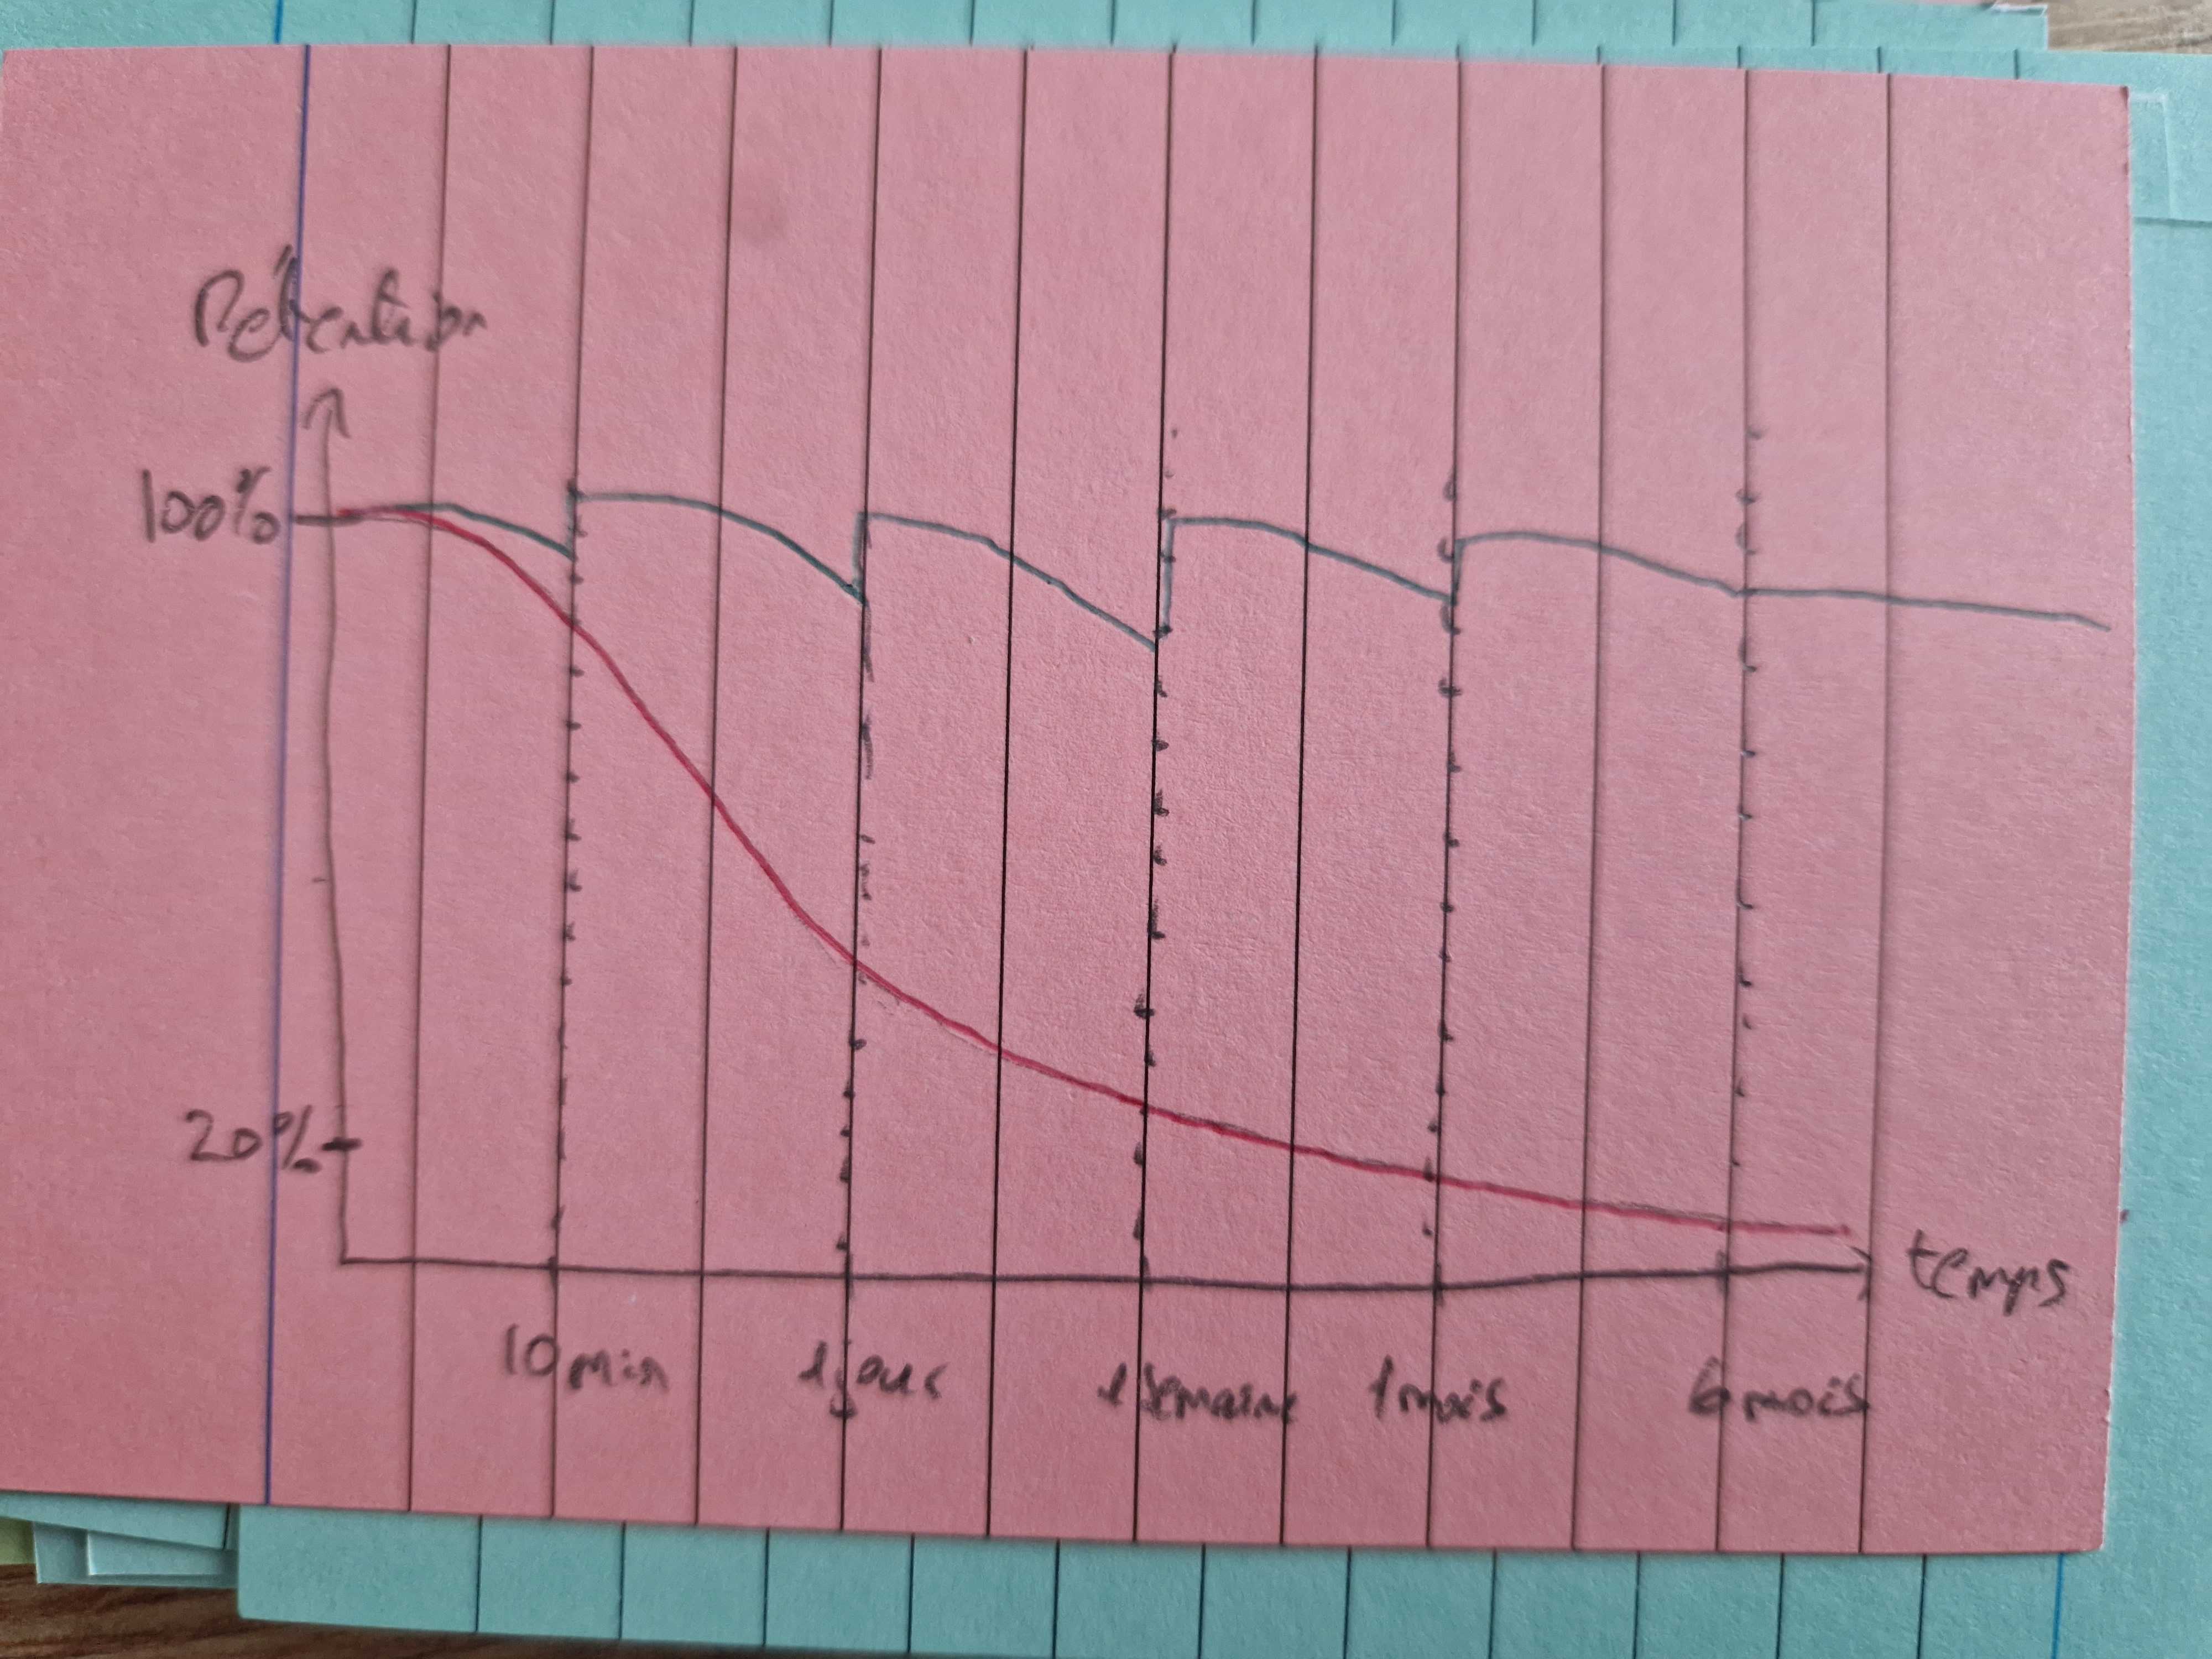 Rétention
100%
20%
temps
10 min
1 jour
1 semaine
1 mois
6 mois